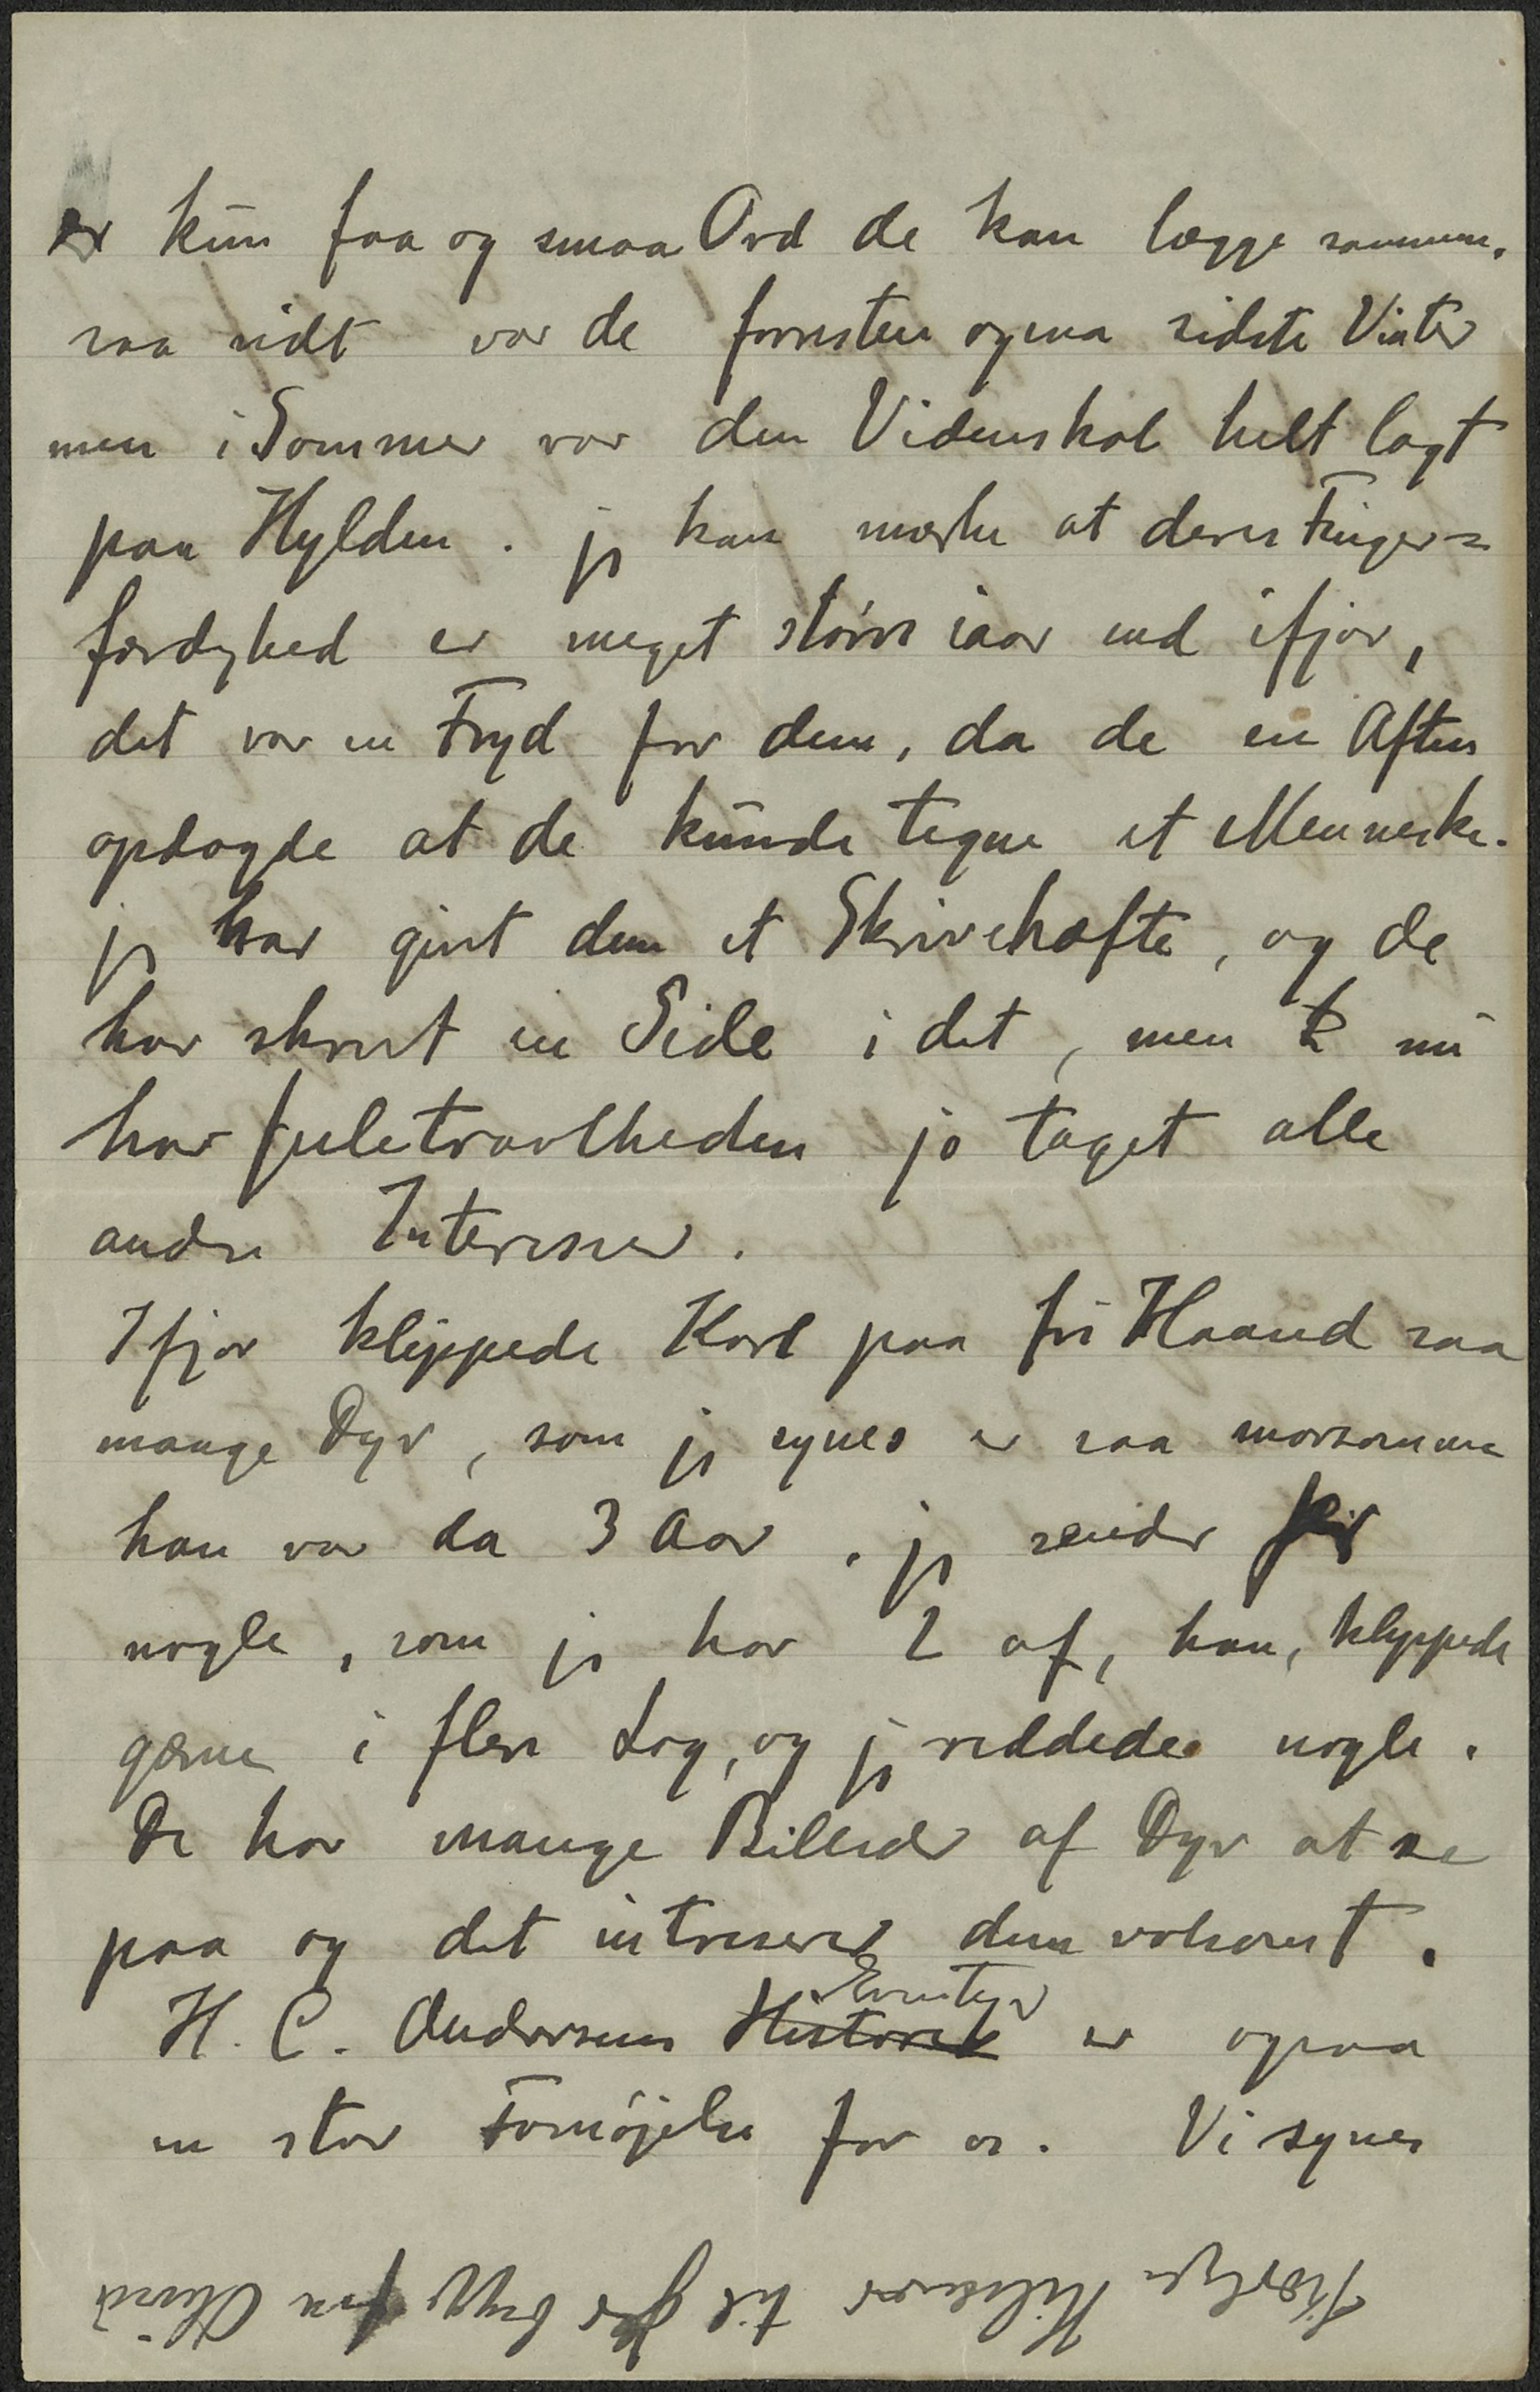 er kun faa og smaa Ord de kan lægge sammen.
saa vidt var de forresten ogsaa sidste Vinter
men i Sommer var den Videnskab helt lagt
paa Hylden. jeg kan mærke at deres Finger=
færdighed er meget større iaar end ifjor,
det var en Fryd for dem, da de en Aften
opdagde at de kunde tegne et Menneske.
jeg har givet dem et Skrivehæfte, og de
har skrevet en Side i det, men nu
har Juletravlheden jo taget alle
andre Interesser.
Ifjor klippede Karl paa fri Haand saa
mange Dyr, som jeg synes er saa morsomme
han var da 3 Aar. jeg sender Jer
nogle, som jeg har 2 af, han, klippede
gerne i flere Lag, og jeg reddede nogle.
De har mange Billeder af Dyr at se
paa og det intreserer dem voldsomt.
H. C. Andersens Historier Eventyr er ogsaa
en stor Fornøjelse for os. Vi synes
Kærlige Hilsener til Jer begge fra Christine